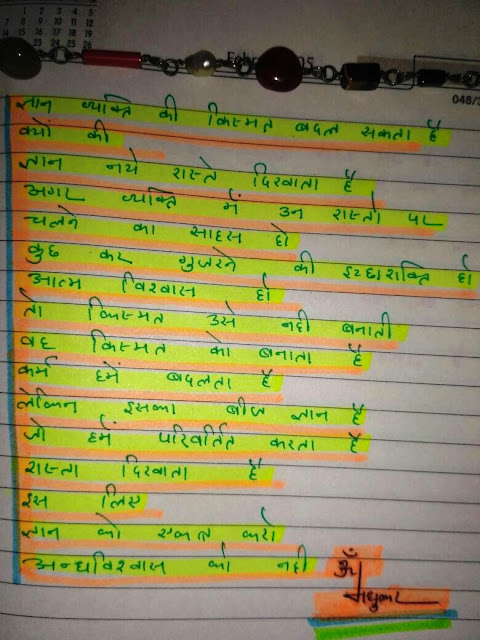 1 2 3 4 5
7 8 9 10 11 12
14 15 16 17 18 19
23 24 25 26
048/3
ज्ञान व्यक्ति की किस्मत बदल सकता है
क्यों की
ज्ञान नये रास्ते दिखाता है
अगर व्यक्ति में उन रास्तों पर
चलने का साहस हो
कुछ कर गुजरने की इच्छाशक्ति हो
आत्म विश्वास हो
तो किस्मत उसे नही बनाती
वह किस्मत को बनाता है
कर्म हमें बदलता है
लेकिन इसका बीज ज्ञान है
जो हमें परिवर्तित करता है
रास्ता दिखाता है
इस लिए
ज्ञान को एकत करो
अन्धविश्वास को नही
ॐ
मधुकर